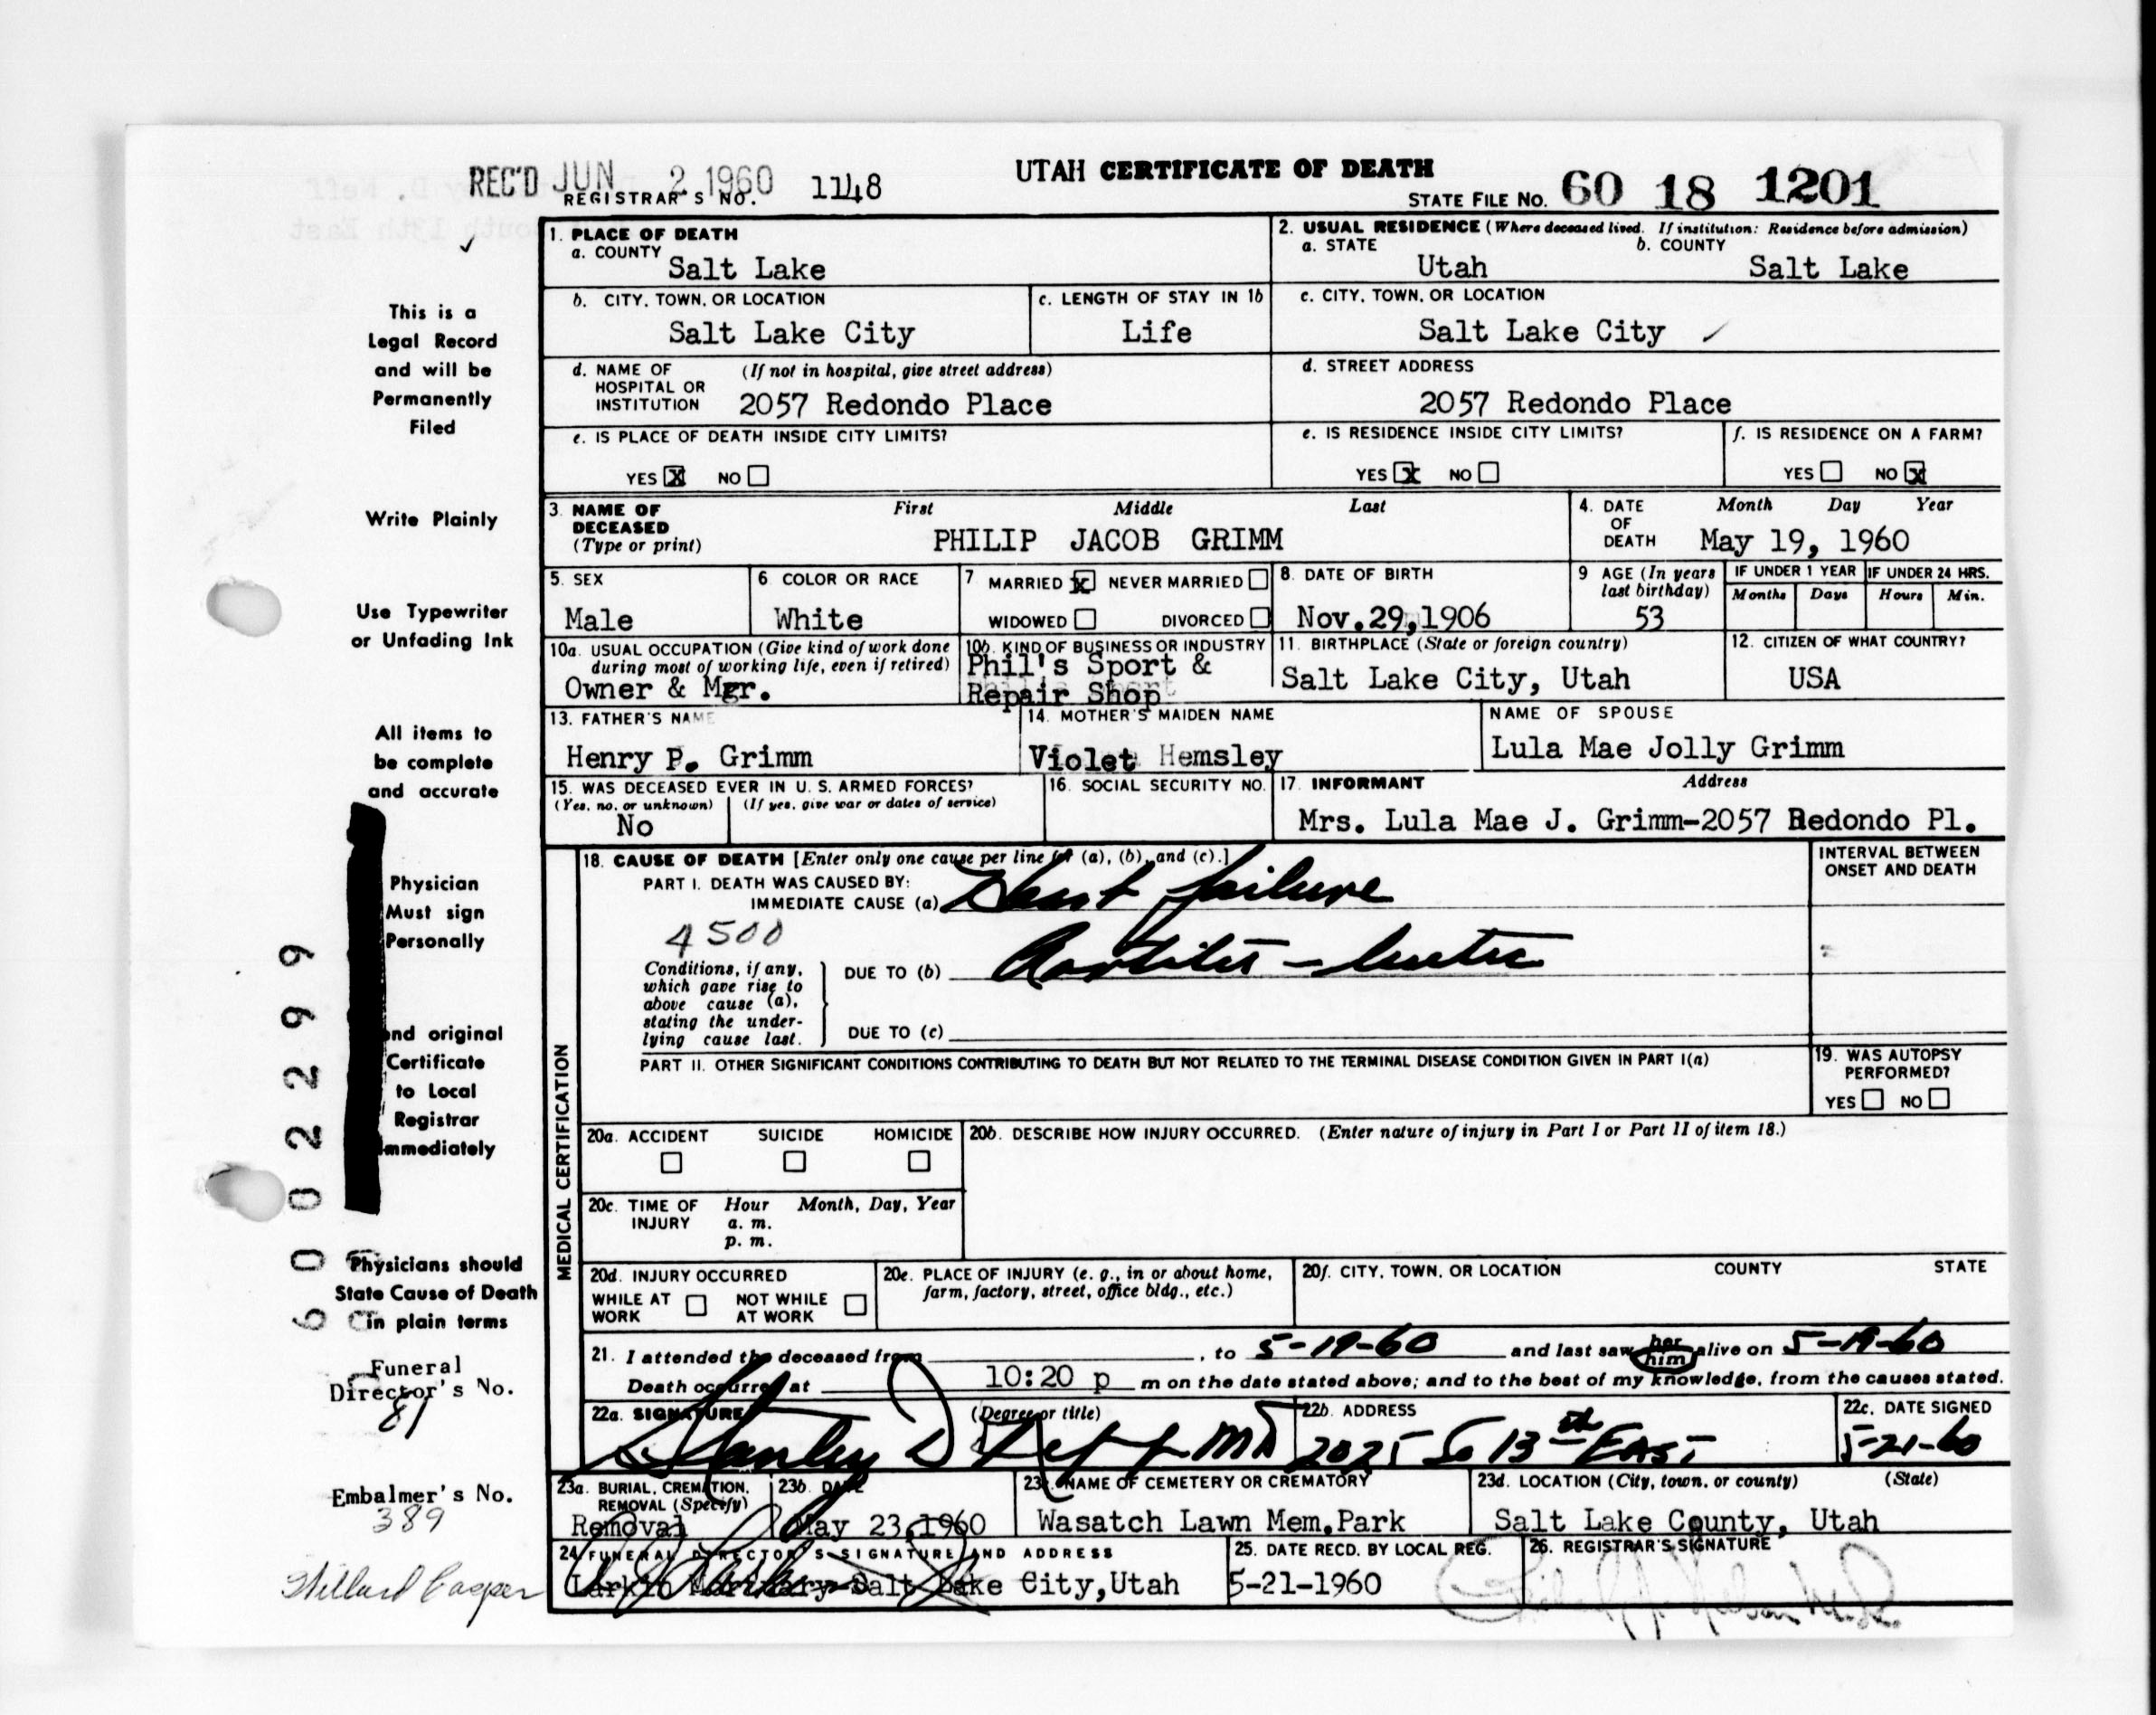 REC'D JUN 2 1960
REGISTRAR'S NO. 1148
UTAH CERTIFICATE OF DEATH
STATE FILE NO. 60 18 1201
1. PLACE OF DEATH
a. COUNTY Salt Lake
2. USUAL RESIDENCE (Where deceased lived. If institution: Residence before admission)
a. STATE Utah b. COUNTY Salt Lake
b. CITY, TOWN, OR LOCATION Salt Lake City
c. LENGTH OF STAY IN 1b Life
c. CITY, TOWN, OR LOCATION Salt Lake City
d. NAME OF HOSPITAL OR INSTITUTION (If not in hospital, give street address) 2057 Redondo Place
d. STREET ADDRESS 2057 Redondo Place
e. IS PLACE OF DEATH INSIDE CITY LIMITS?
YES X NO
e. IS RESIDENCE INSIDE CITY LIMITS?
YES X NO
f. IS RESIDENCE ON A FARM?
YES NO X
3. NAME OF DECEASED (Type or print) First Middle Last
PHILIP JACOB GRIMM
4. DATE OF DEATH Month Day Year
May 19, 1960
5. SEX Male
6. COLOR OR RACE White
7 MARRIED X NEVER MARRIED
WIDOWED DIVORCED
8. DATE OF BIRTH Nov.29,1906
9 AGE (In years last birthday) 53
IF UNDER 1 YEAR Months Days
IF UNDER 24 HRS. Hours Min.
10a. USUAL OCCUPATION (Give kind of work done during most of working life, even if retired)
Owner & Mgr.
10b. KIND OF BUSINESS OR INDUSTRY
Phil's Sport &
Repair Shop
11. BIRTHPLACE (State or foreign country)
Salt Lake City, Utah
12. CITIZEN OF WHAT COUNTRY?
USA
13. FATHER'S NAME
Henry P. Grimm
14. MOTHER'S MAIDEN NAME
Violet Hemsley
NAME OF SPOUSE
Lula Mae Jolly Grimm
15. WAS DECEASED EVER IN U. S. ARMED FORCES?
(Yes, no, or unknown) (If yes, give war or dates of service)
No
16. SOCIAL SECURITY NO.
17. INFORMANT Address
Mrs. Lula Mae J. Grimm-2057 Redondo Pl.
MEDICAL CERTIFICATION
18. CAUSE OF DEATH [Enter only one cause per line for (a), (b), and (c).]
INTERVAL BETWEEN ONSET AND DEATH
PART I. DEATH WAS CAUSED BY:
IMMEDIATE CAUSE (a) Heart failure
4500
Conditions, if any, which gave rise to above cause (a), stating the underlying cause last.
DUE TO (b) Aortitis - luetic
DUE TO (c)
PART II. OTHER SIGNIFICANT CONDITIONS CONTRIBUTING TO DEATH BUT NOT RELATED TO THE TERMINAL DISEASE CONDITION GIVEN IN PART I(a)
19. WAS AUTOPSY PERFORMED?
YES NO
20a. ACCIDENT SUICIDE HOMICIDE
20b. DESCRIBE HOW INJURY OCCURRED. (Enter nature of injury in Part I or Part II of item 18.)
20c. TIME OF INJURY Hour Month, Day, Year
a. m.
p. m.
20d. INJURY OCCURRED
WHILE AT WORK NOT WHILE AT WORK
20e. PLACE OF INJURY (e. g., in or about home, farm, factory, street, office bldg., etc.)
20f. CITY, TOWN, OR LOCATION COUNTY STATE
21. I attended the deceased from , to 5-19-60 and last saw her him alive on 5-19-60
Death occurred at 10:20 p m on the date stated above; and to the best of my knowledge, from the causes stated.
22a. SIGNATURE (Degree or title)
Stanley D Neff MD
22b. ADDRESS
2025 So 13th EAST
22c. DATE SIGNED
5-21-60
23a. BURIAL, CREMATION, REMOVAL (Specify)
Removal
23b. DATE
May 23,1960
23c. NAME OF CEMETERY OR CREMATORY
Wasatch Lawn Mem.Park
23d. LOCATION (City, town, or county) (State)
Salt Lake County, Utah
24 FUNERAL DIRECTOR'S SIGNATURE AND ADDRESS
Larkin Mortuary-Salt Lake City,Utah
25. DATE RECD. BY LOCAL REG.
5-21-1960
26. REGISTRAR'S SIGNATURE
This is a
Legal Record
and will be
Permanently
Filed
Write Plainly
Use Typewriter
or Unfading Ink
All items to
be complete
and accurate
Physician
Must sign
Personally
nd original
Certificate
to Local
Registrar
Immediately
Physicians should
State Cause of Death
in plain terms
Funeral
Director's No.
81
Embalmer's No.
389
Willard Casper
60022299